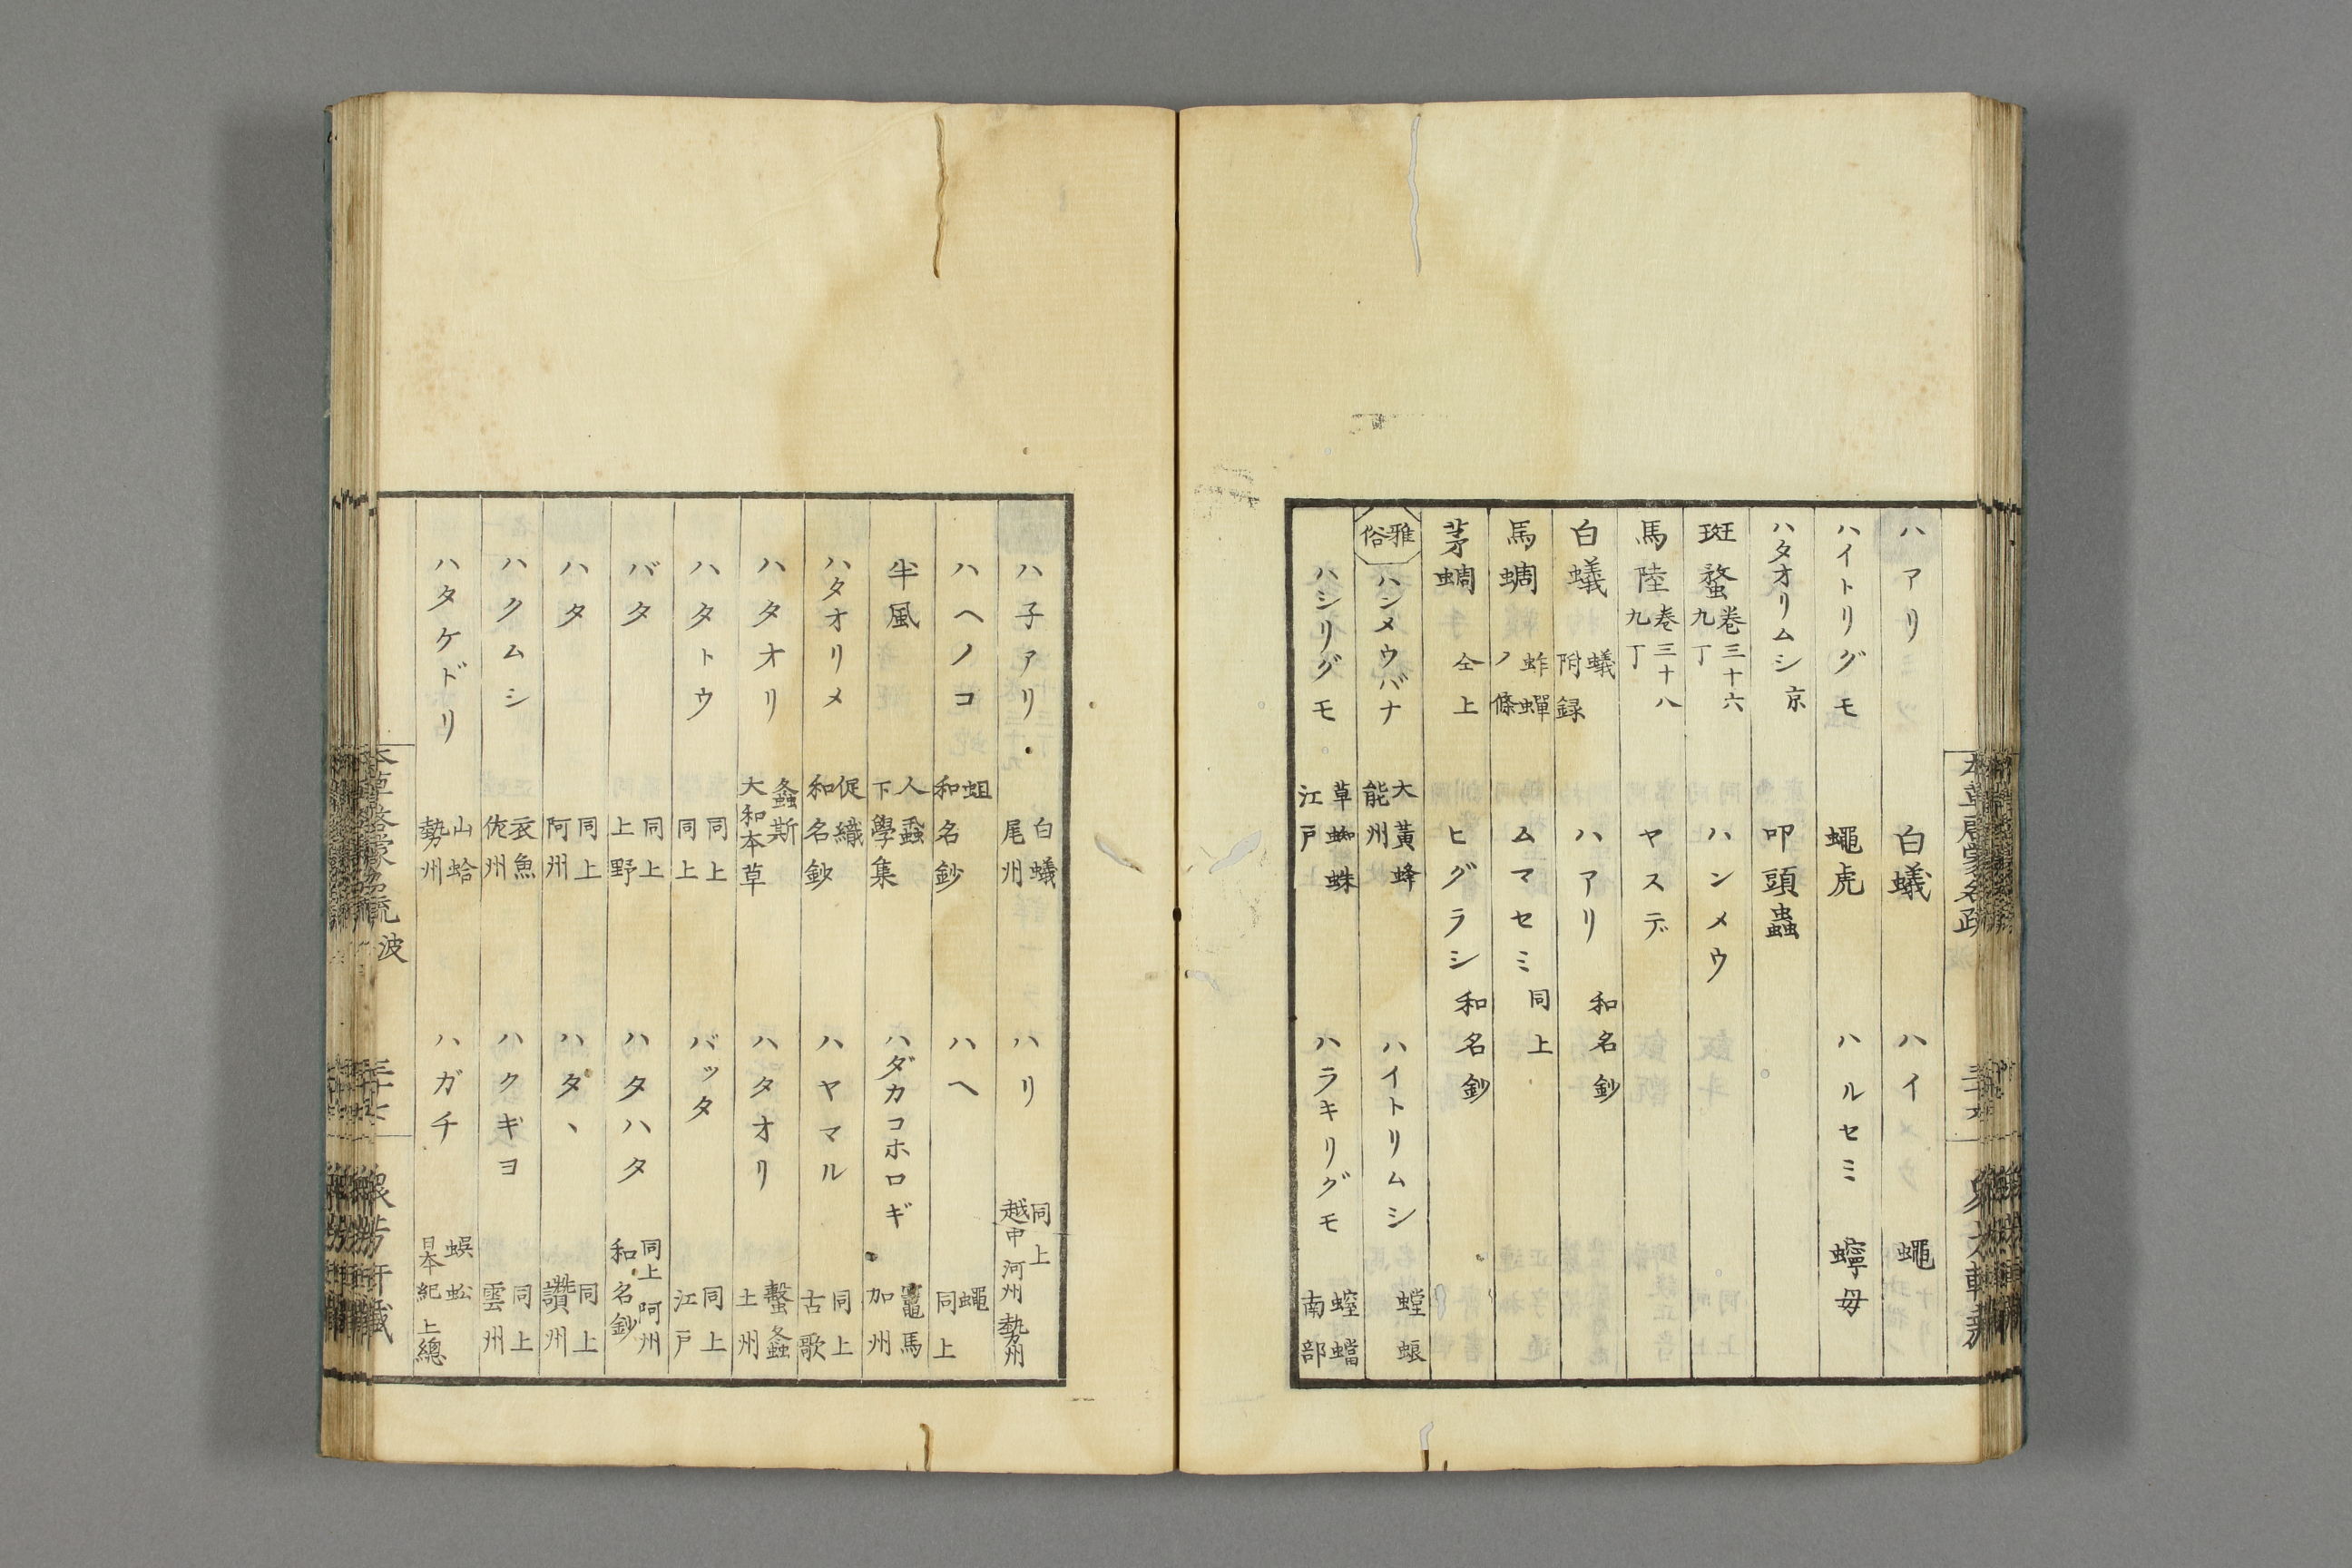 ハアリ 白蟻 ハイ 蠅
ハイトリグモ 蠅虎 ハルセミ 蠽母
ハタオリムシ 京 叩頭蟲
斑蝥 卷三十六 九丁 ハンメウ
馬陸 卷三十八 九丁 ヤスデ
白蟻 蟻附録 ハアリ 和名鈔
馬蜩 蚱蟬ノ條 ムマセミ 同上
茅蜩 仝上 ヒグラシ 和名鈔
雅俗 ハンメウバナ 大黃蜂 能州 ハイトリムシ 螳蜋
ハシリグモ 草蜘蛛 江戸 ハラキリグモ 螲蟷 南部
本草啓蒙名疏
ハ子アリ 白蟻 尾州 ハリ 同上 越中 河州 勢州
ハヘノコ 蛆 和名鈔 ハヘ 蠅 同上
半風 人蝨 下學集 ハダカコホロギ 竈馬 加州
ハタオリメ 促織 和名鈔 ハヤマル 同上 古歌
ハタオリ 螽斯 大和本草 ハタオリ 蟿螽 土州
ハタトウ 同上 同上 バッタ 同上 江戸
バタ 同上 上野 ハタハタ 同上 阿州 和名鈔
ハタ 同上 阿州 ハタヽ 同上 讚州
ハクムシ 衣魚 佐州 ハクギヨ 同上 雲州
ハタケドリ 山蛤 勢州 ハガチ 蜈蚣 日本紀 上總
本草啓蒙名疏 波 三十七